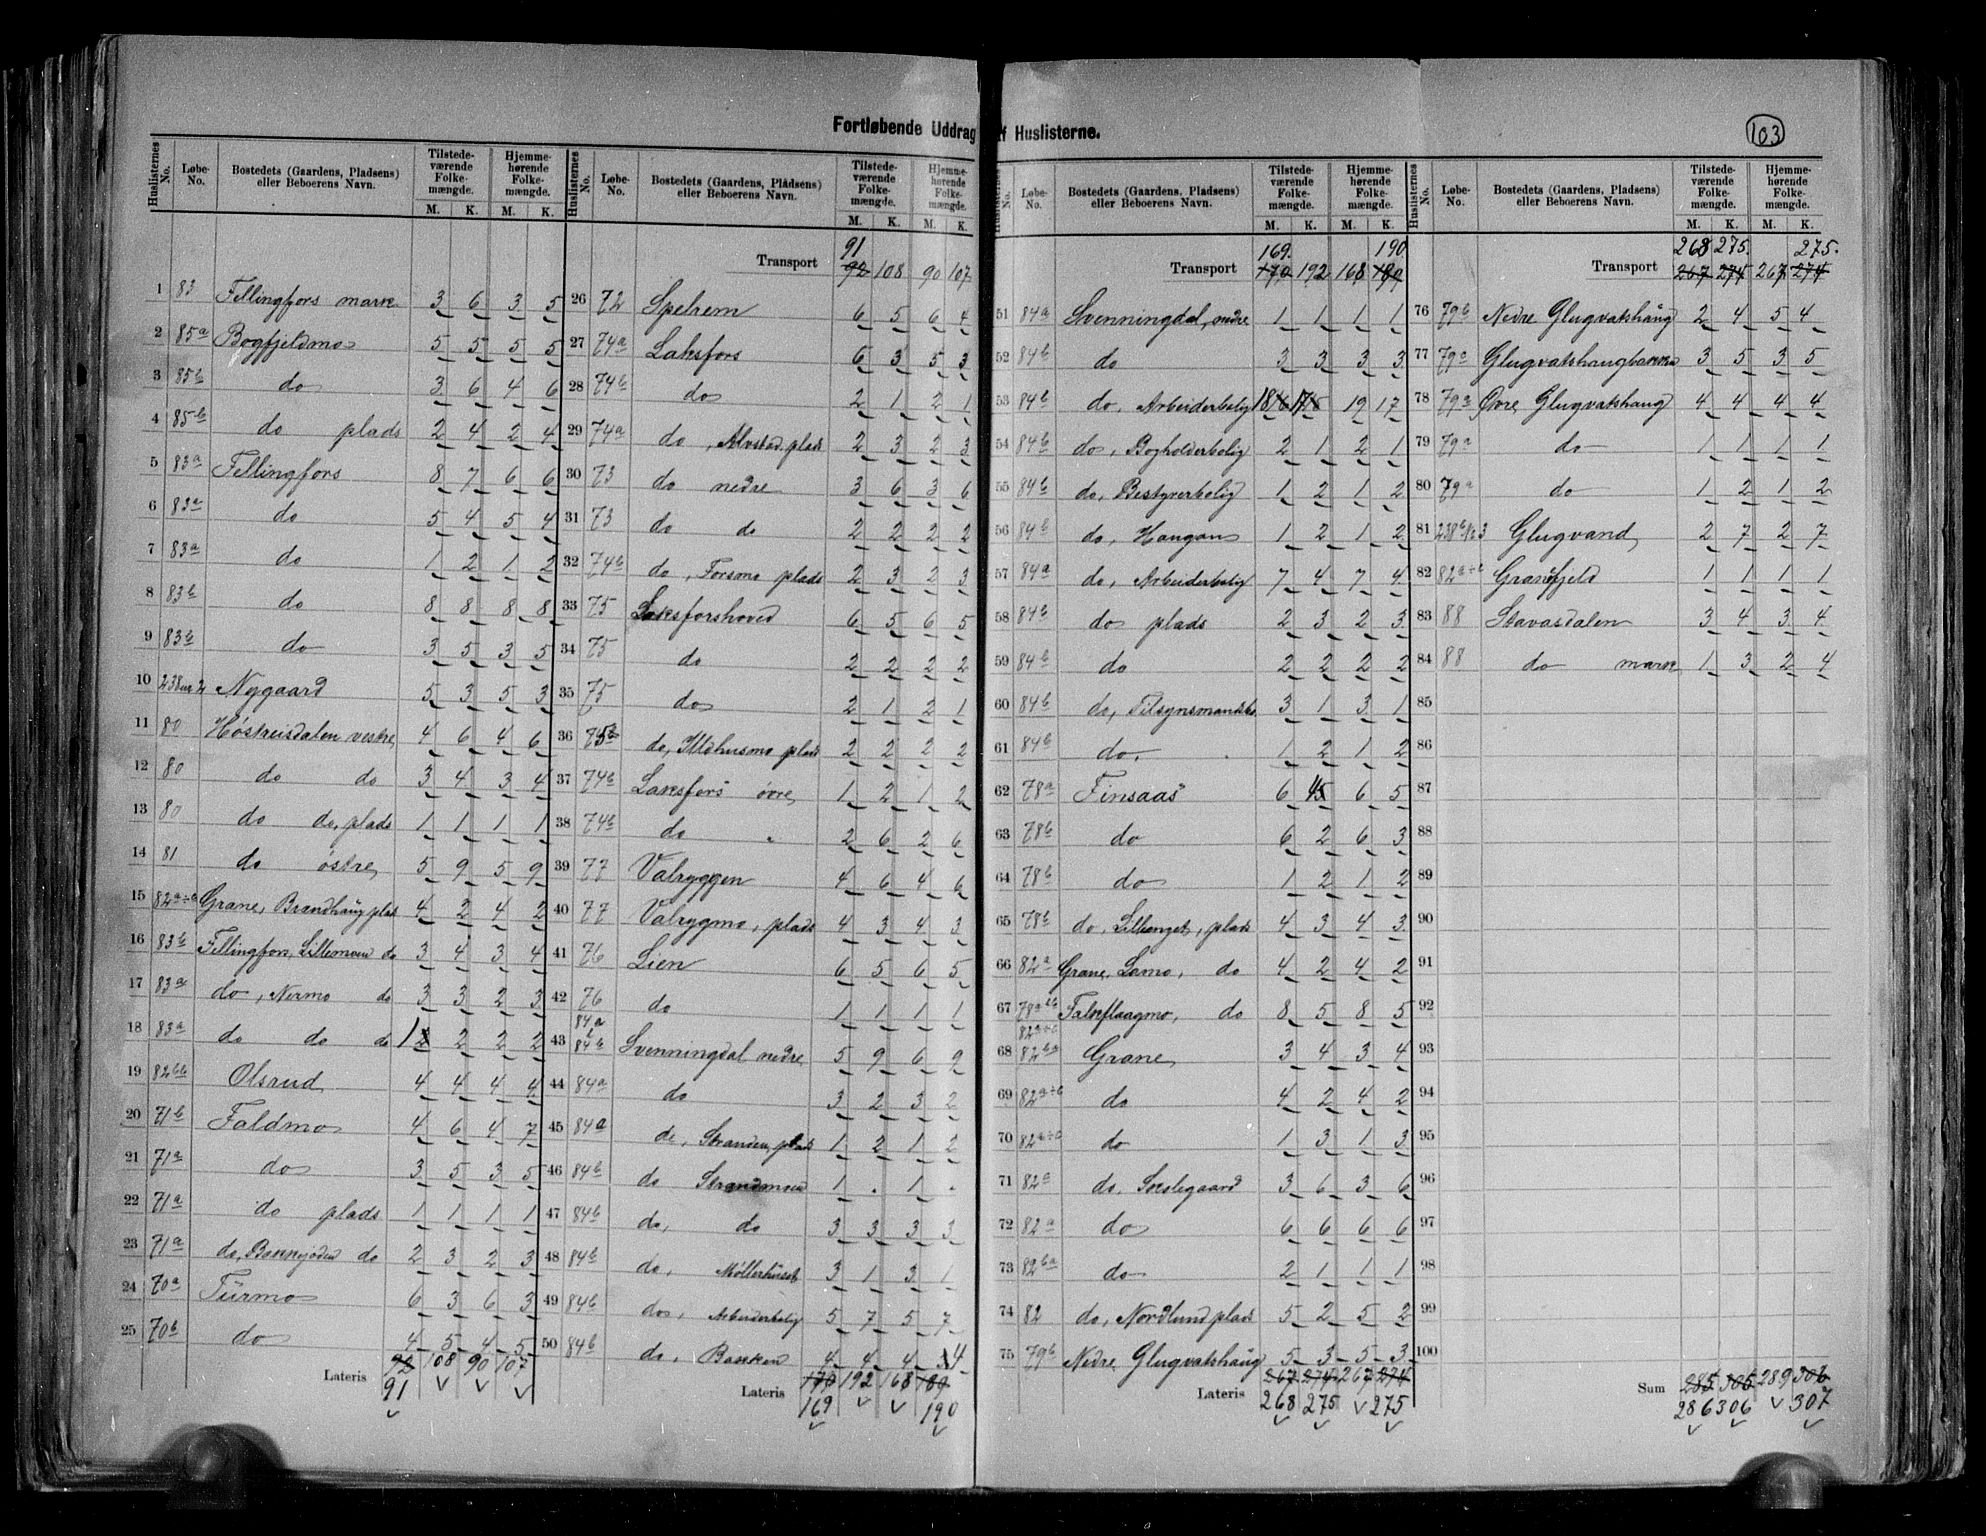 Fortløbende Uddrag af Huslisterne.
103
Huslisternes No. Løbe-No. Bostedets (Gaardens, Pladsens) eller Beboerens Navn. Tilstedeværende Folkemængde. M. K. Hjemmehørende Folkemængde. M. K.
1 83 Fellingfors mark 3 6 3 5
2 85a Bogfjeldmo 5 5 5 5
3 85b do 3 6 4 6
4 85b do plads 2 4 2 4
5 83a Fellingfors 8 7 6 6
6 83a do 5 4 5 4
7 83a do 1 2 1 2
8 83b do 8 8 8 8
9 83b do 3 5 3 5
10 Nygaard 5 3 5 3
11 80 Høstreisdalen vestre 4 6 4 6
12 80 do do 3 4 3 4
13 80 do do, plads 1 1 1 1
14 81 do østre 5 9 5 9
15 Grane, Brandhaug plads 4 2 4 2
16 83b Fellingfors, Lillemoen do 3 4 3 4
17 83a do, Nermo do 3 3 2 3
18 83a do do do 1 2 2 2
19 82bb Olsrud 4 4 4 4
20 71b Faldmo 4 6 4 7
21 71a do 3 5 3 5
22 71a do plads 1 1 1 1
23 71a do, do 2 3 2 3
24 70a Turmo 6 3 6 3
25 70b do 4 5 4 5
Lateris 92 108 90 107
91
Huslisternes No. Løbe-No. Bostedets (Gaardens, Pladsens) eller Beboerens Navn. Tilstedeværende Folkemængde. M. K. Hjemmehørende Folkemængde. M. K.
91
Transport 92 108 90 107
26 72 Spelrem 6 5 6 4
27 74a Laksfors 6 3 5 3
28 74b do 2 1 2 1
29 74a do, Alvstad plads 2 3 2 3
30 73 do nedre 3 6 3 6
31 73 do do 2 2 2 2
32 74b do, Forsmo plads 2 3 2 3
33 75 Laksforshoved 6 5 6 5
34 75 do 2 2 2 2
35 75 do 2 1 2 1
36 do, Ildhusmo plads 2 2 2 2
37 74b Laksfors øvre 1 2 1 2
38 74b do " 2 6 2 6
39 77 Valryggen 4 6 4 6
40 77 Valrygmo, plads 4 3 4 3
41 76 Lien 6 5 6 5
42 76 do 1 1 1 1
43 84a 84b Svenningdal nedre 5 9 6 9
44 84a do 3 2 3 2
45 84a do, Stranden, plads 1 2 1 2
46 84b do Strandmoen 1 . 1 .
47 84b do, do 3 3 3 3
48 84b do, Møllerhuset 3 1 3 1
49 84b do, Arbeiderbolig 5 7 5 7
50 84b do, Bakken 4 4 4 4
Lateris 170 192 168 189
169 190
Huslisternes No. Løbe-No. Bostedets (Gaardens, Pladsens) eller Beboerens Navn. Tilstedeværende Folkemængde. M. K. Hjemmehørende Folkemængde. M. K.
169. 190
Transport 170 192 168 189
51 84a Svenningdal, nedre 1 1 1 1
52 84b do 2 3 3 3
53 84b do, Arbeiderbolig 19 17
54 84b do, Bogholderbolig 2 1 2 1
55 84b do, Bestyrerbolig 1 2 1 2
56 84b do, Haugan 1 2 1 2
57 84a do, Arbeiderbolig 7 4 7 4
58 84b do plads 2 3 2 3
59 84b do 2 2 2 2
60 84b do, 3 1 3 1
61 84b do. 1 2 1 2
62 78a Finsaas 6 5 6 5
63 78b do 6 2 6 3
64 78b do 1 2 1 2
65 78b do, Lillenget, plads 4 3 4 3
66 82a Grane, Lamo, do 4 2 4 2
67 Falkflaagmo, do 8 5 8 5
68 82ba Grane 3 4 3 4
69 do 4 2 4 2
70 do 1 3 1 3
71 82a do, 3 6 3 6
72 82a do 6 6 6 6
73 82ba do 2 1 1 1
74 82 do, Nordlund plads 5 2 5 2
75 79b Nedre Glugvatshaug 5 3 5 3
Lateris 267 274 267 274
268 275 275
Huslisternes No. Løbe-No. Bostedets (Gaardens, Pladsens) eller Beboerens Navn. Tilstedeværende Folkemængde. M. K. Hjemmehørende Folkemængde. M. K.
268 275. 275.
Transport 267 274 267 274
76 79b Nedre Glugvatshaug 2 4 5 4
77 79a Glugvatshaugbakken 3 5 3 5
78 79a Øvre Glugvatshaug 4 4 4 4
79 79a do 1 1 1 1
80 79a do 1 2 1 2
81 Glugvand 2 7 2 7
82 Granfjeld 1 1 1 1
83 88 Stavasdalen 3 4 3 4
84 88 do mark 1 3 2 4
85
86
87
88
89
90
91
92
93
94
95
96
97
98
99
100
Sum 285 305 289 306
286 306 307